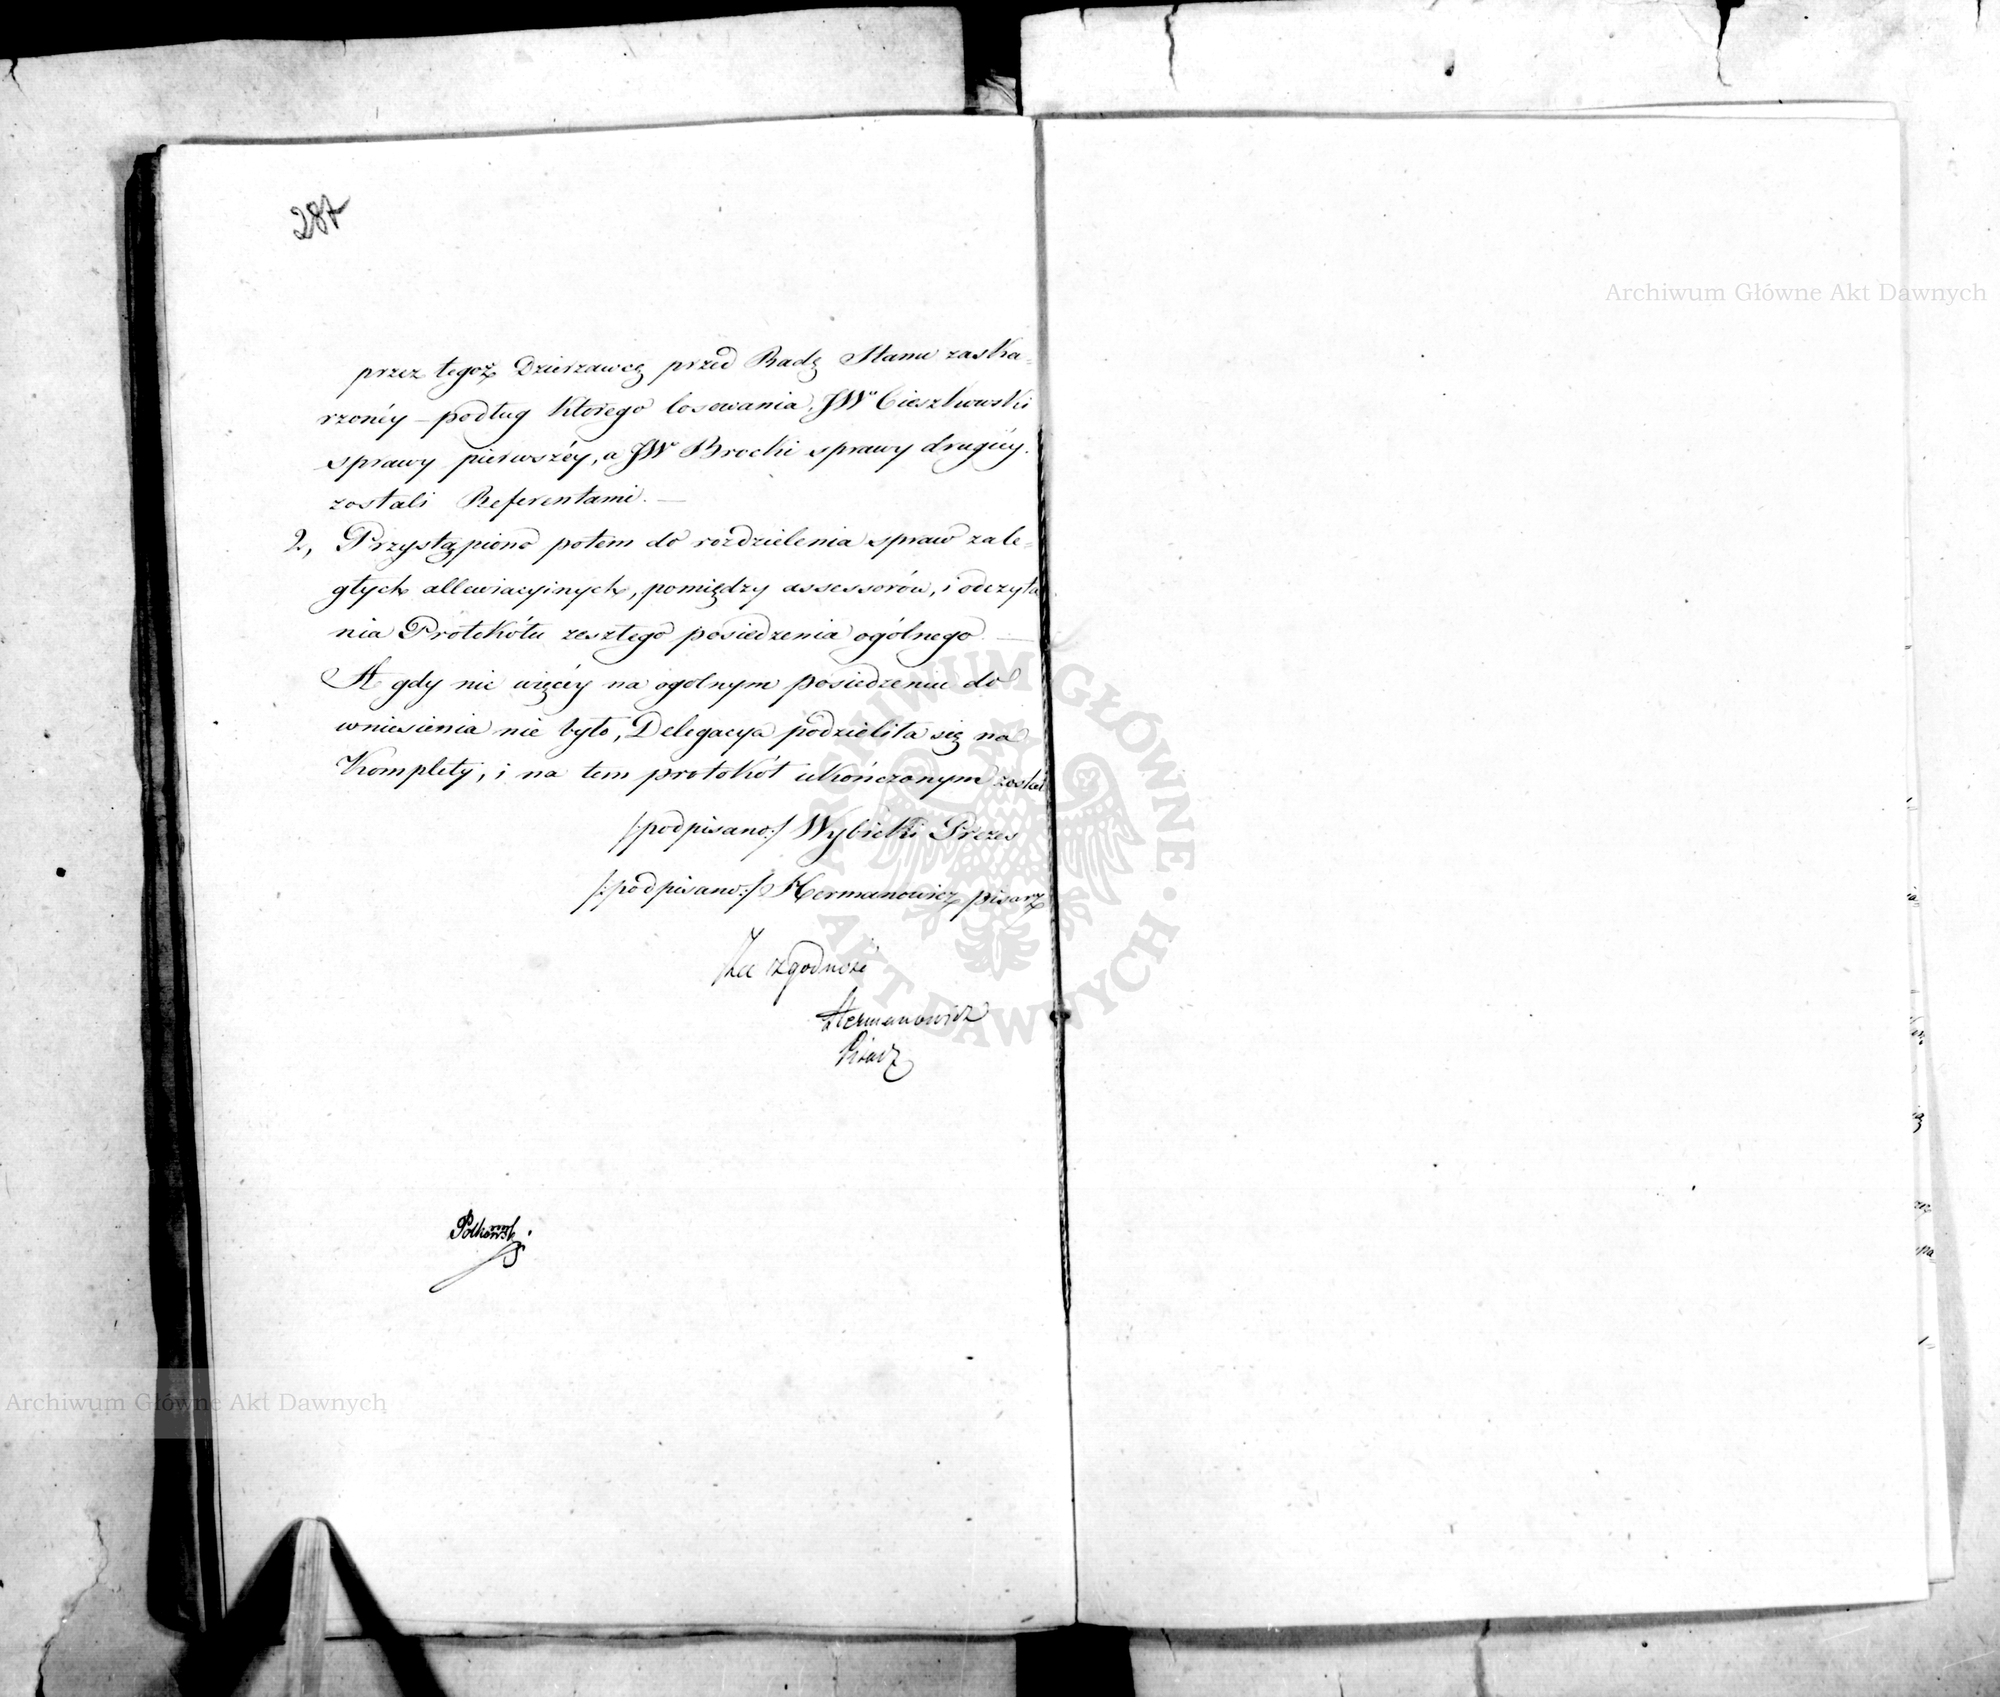 287
przez tegoż Dzierzawcę przed Radę Stanu zaska-
rzonéy – podług którego losowania, JW Cieszkowski
sprawy pierwszéy, a JW Brocki sprawy drugiéy
zostali Referentami. —
2, Przystąpiono potem do rozdzielenia spraw zale-
głych allewiacyinych, pomiędzy assessorów, i odczyta
nia Protokółu zeszłego posiedzenia ogólnego. —
A gdy nic więcéy na ogolnym posiedzeniu do
wniesienia nie było, Delegacya podzieliła się na
Komplety, i na tem protokół ukończonym został
/:podpisano:/ Wybicki Prezes
/:podpisano:/ Hermanowicz pisarz
Za zgodność
Hermanowicz
Pisarz
Polkowski
Archiwum Główne Akt Dawnych
Archiwum Główne Akt Dawnych
ARCHIWUM GŁÓWNE AKT DAWNYCH